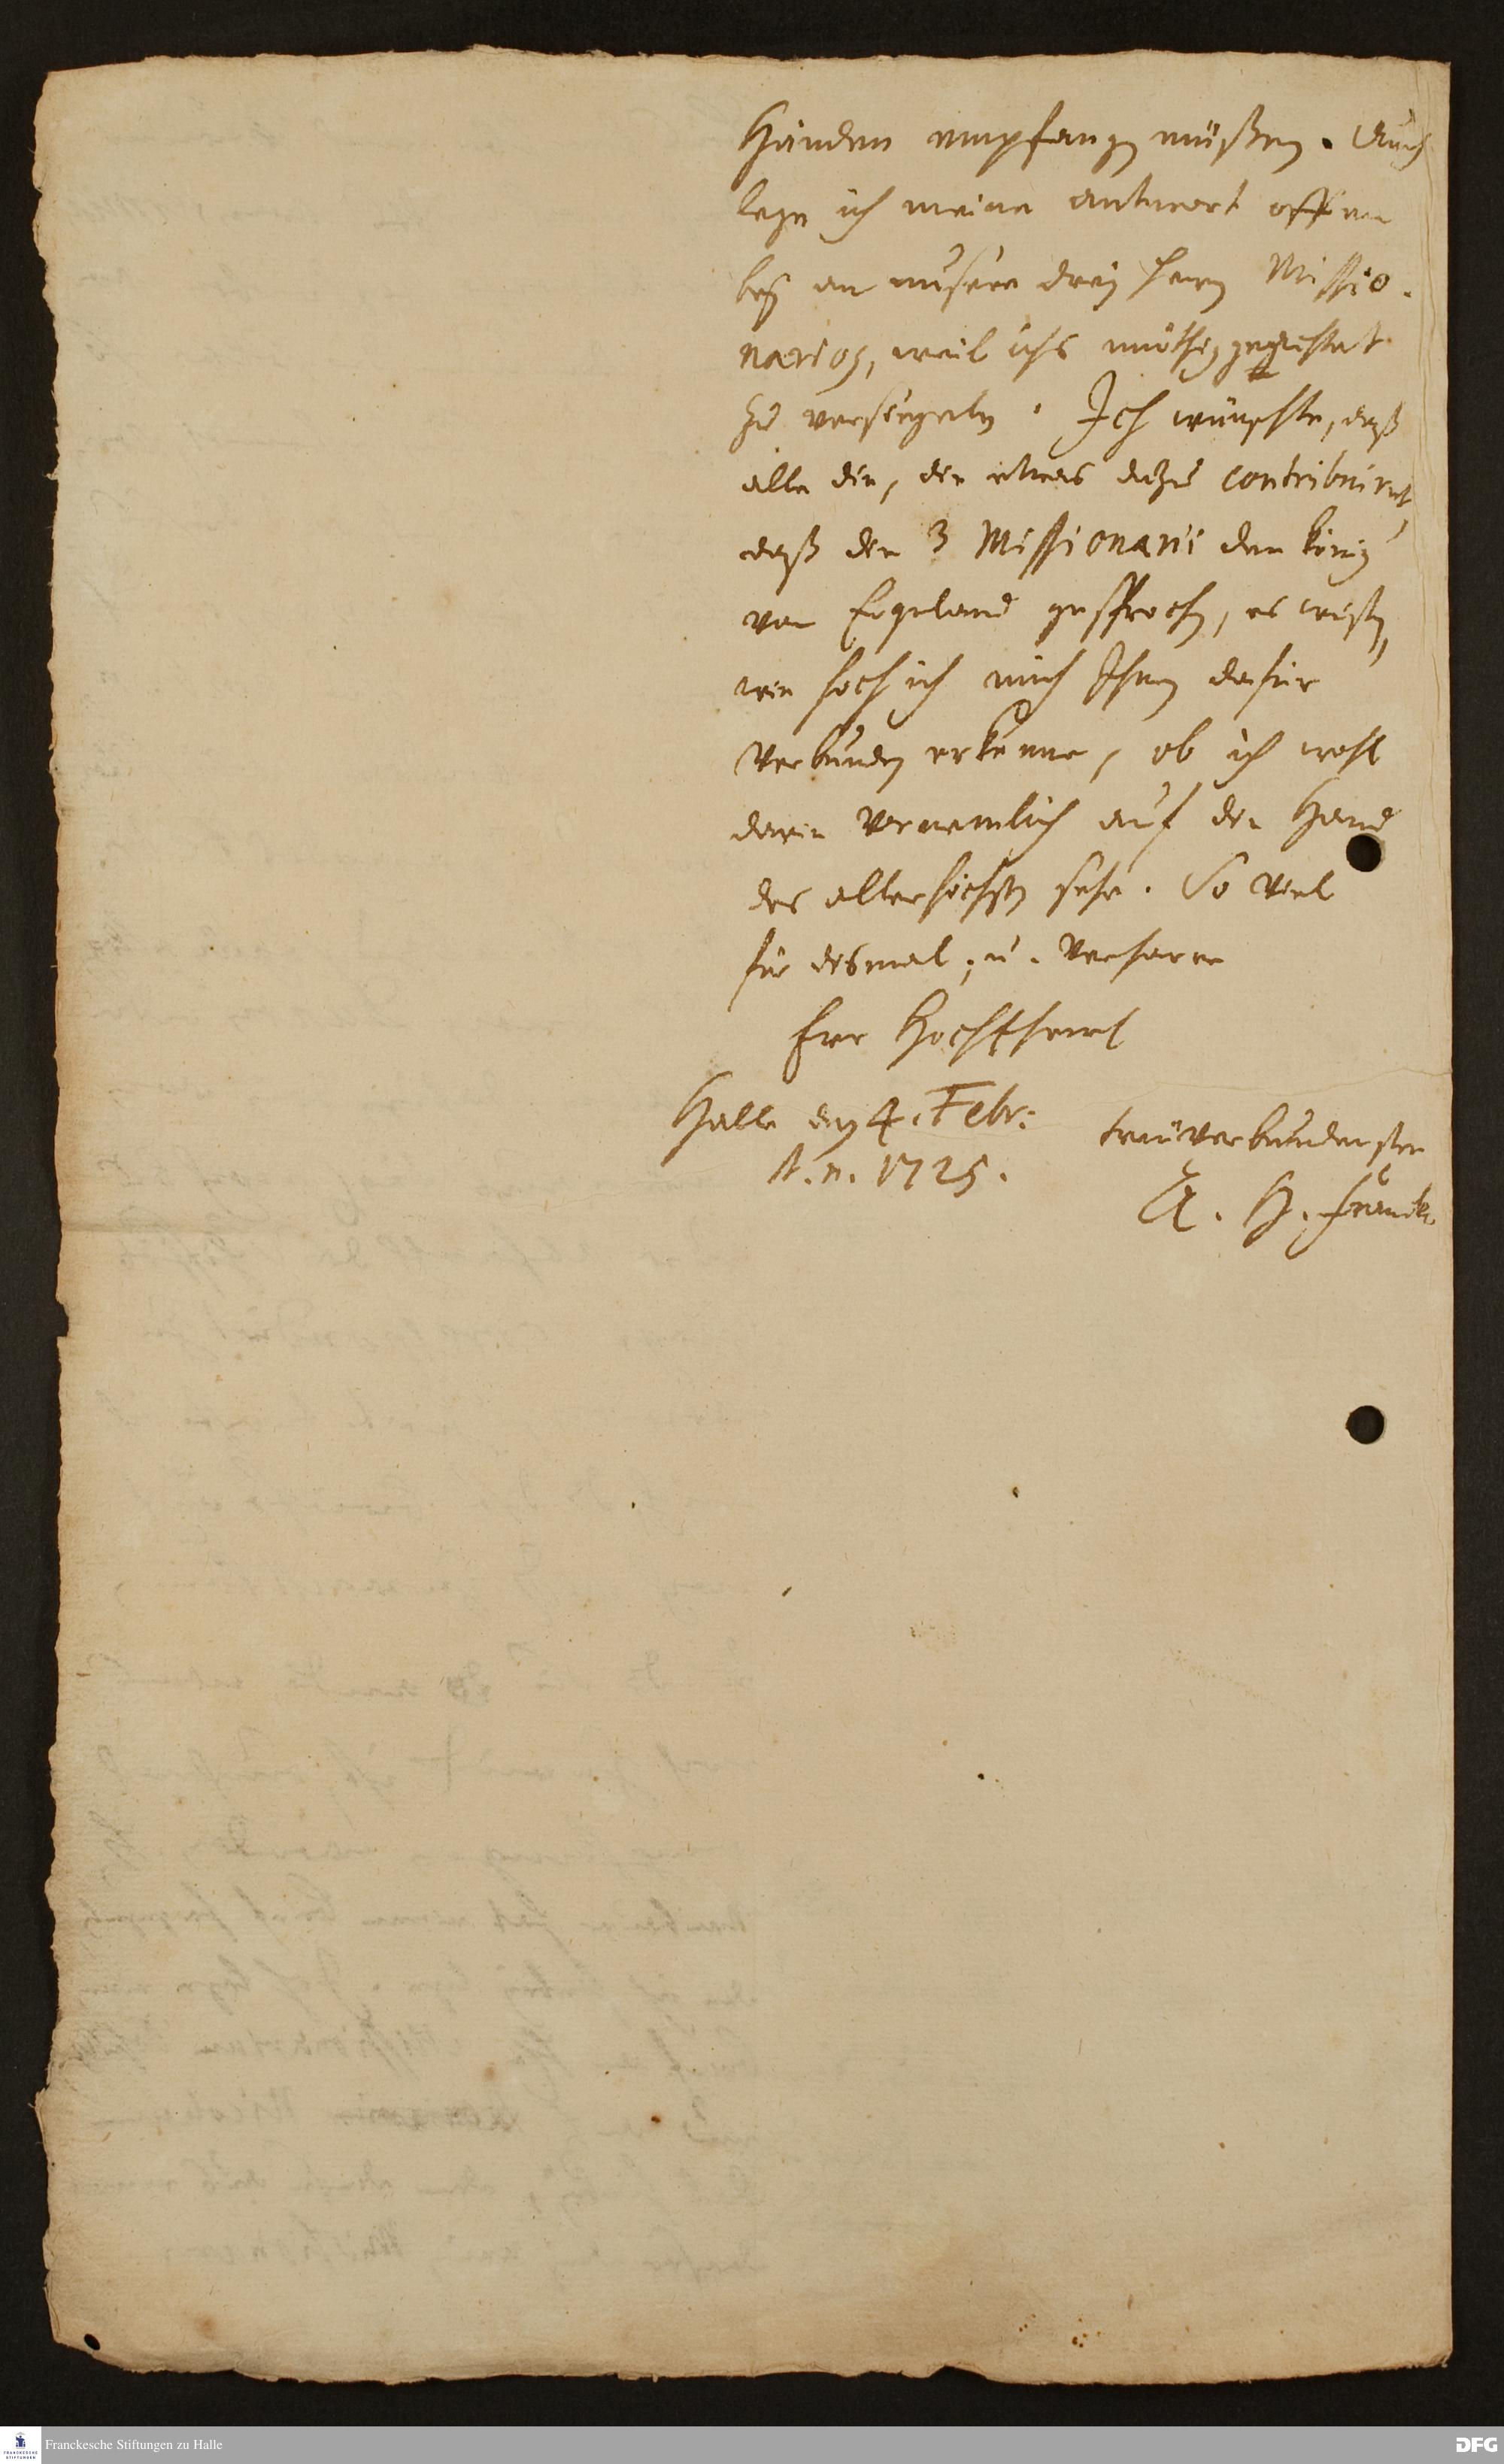 Händen empfangen müßen. Auch
lege ich meine antwort offen
bey an unsere drey Herrn Missio-
narios, weil ichs unnöthig geachtet
zu versiegeln. Ich wünschte, daß
alle die, die etwas dazu contribuiret,
daß die 3 Missionarii den König
von Engeland gesprochen, es wißen,
wie hoch ich mich Ihnen dafür
verbunden erkenne, ob ich wohl
darin vornemlich auf die Hand
des allerhöchsten sehe. So viel
für dismal; u. verharre
Ew Hochehrw
Halle den 4. Febr.
st. n. 1725.
treuverbundenster
A. H. Francke.
Franckesche Stiftungen zu Halle
DFG